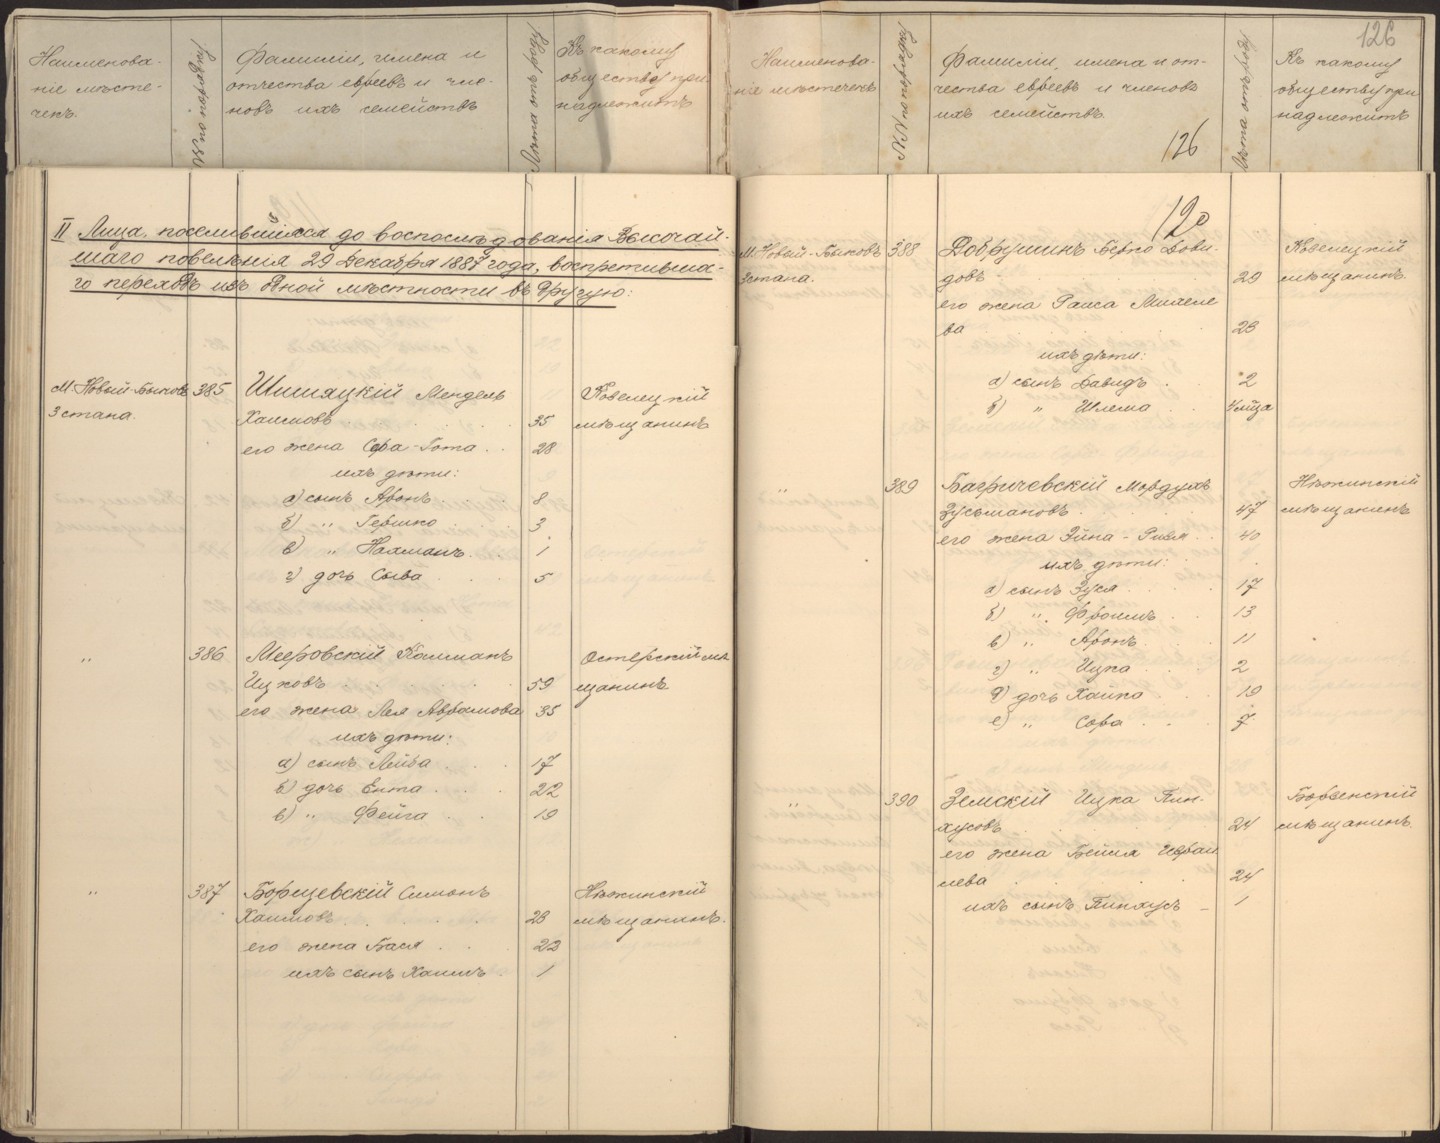 Наименова-
ніе мѣсте-
чекъ.
№№ по порядку
Фамиліи, имена и
отчества евреевъ и чле-
новъ ихъ семействъ
Лѣта отъ роду
Къ какому
обществу при
надлежитъ
II Лица, поселившіяся до воспослѣдованія Высочай-
шаго повелѣнія 29 Декабря 1887 года, воспретивша-
го переходъ изъ одной мѣстности въ другую:
М. Новый-Быковъ 385 Шишацкій Мендель Козелецкій
3 стана. Хаимовъ 35 мѣщанинъ
его жена Сора-Гота 28
ихъ дѣти:
а) сынъ Аронъ 8
б) " Гершко 3
в) " Нахманъ 1
г) дочь Сыва 5
" 386 Мееровскій Калманъ Остерскій мѣ
Ицковъ 59 щанинъ
его жена Лея Абрамова 35
ихъ дѣти:
а) сынъ Лейба 17
б) дочь Ента 22
в) " Фейга 19
" 387 Борщевскій Симонъ Нѣжинскій
Хаимовъ 28 мѣщанинъ.
его жена Бася 22
ихъ сынъ Хаимъ 1
126
Наименова-
ніе мѣстечекъ
№№ по порядку
Фамиліи, имена и от-
чества евреевъ и членовъ
ихъ семействъ.
126
Лѣта отъ роду
Къ какому
обществу при
надлежитъ
120
М. Новый-Быковъ 388 Добрушинъ Берко Дови- Козелецкій
3 стана. довъ 29 мѣщанинъ.
его жена Раиса Михеле
ва 28
ихъ дѣти:
а) сынъ Давидъ 2
б) " Шлема 4 м-ца
" 389 Багричевскій Мордухъ Нѣжинскій
Зусьмановъ 47 мѣщанинъ.
его жена Эйна-Ривя 40
ихъ дѣти:
а) сынъ Зуся 17
б) " Фроимъ 13
в) " Аронъ 11
г) " Ицка 2
д) дочь Хайка 19
е) " Сора 7
" 390 Земскій Ицка Пин- Борзенскій
хусовъ 24 мѣщанинъ.
его жена Бейля Израи
лева 24
ихъ сынъ Пинхусъ 1